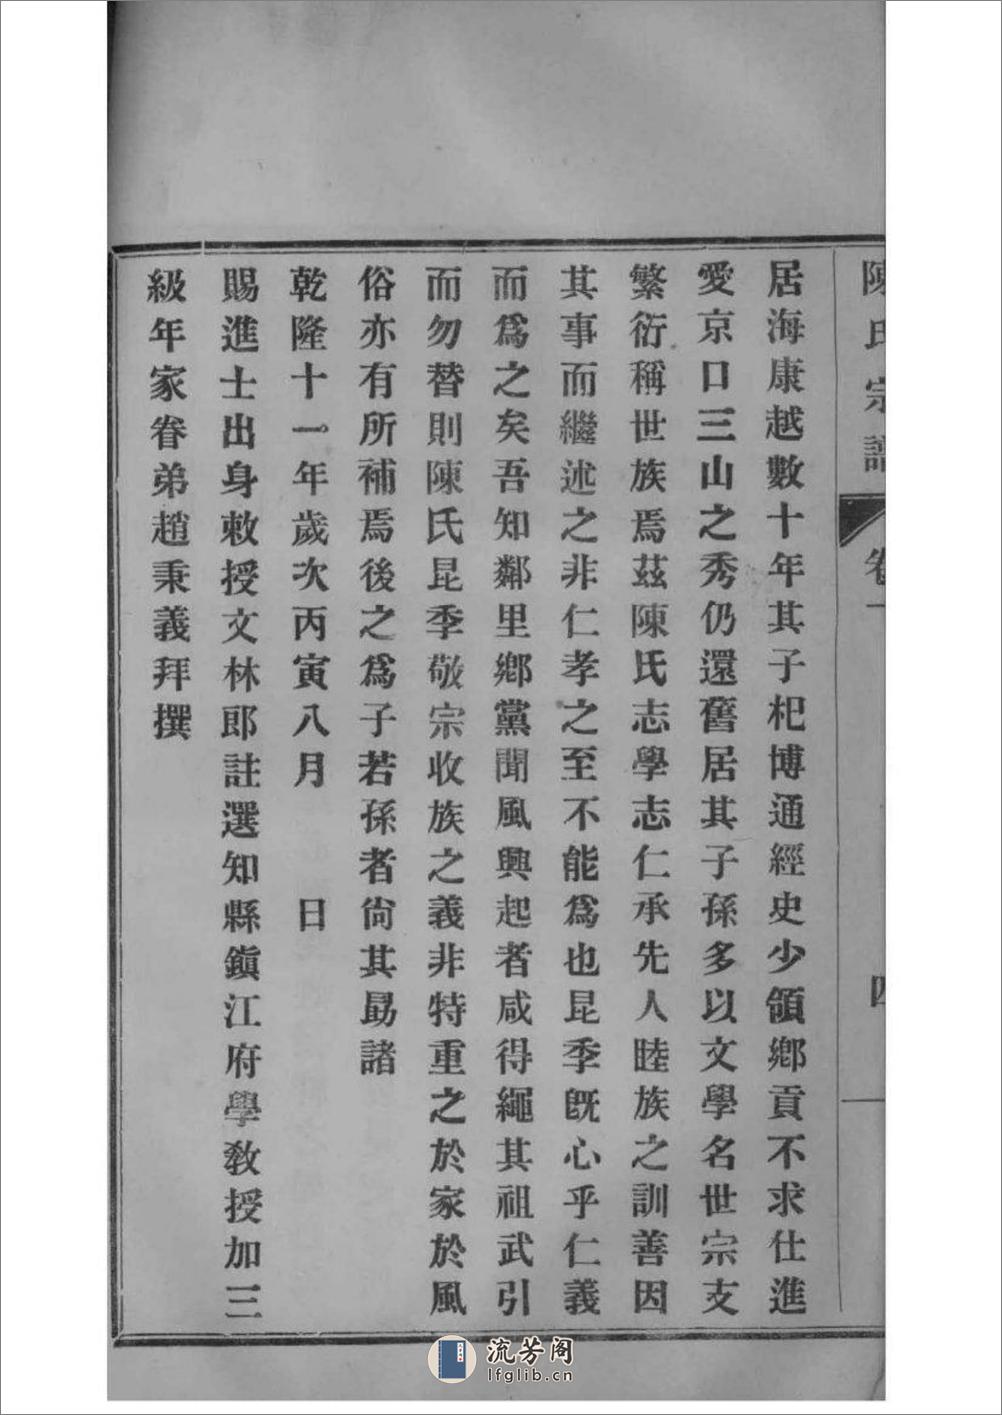 陳氏宗譜 卷一 四
居海康越數十年其子杞博通經史少領鄕貢不求仕進
愛京口三山之秀仍還舊居其子孫多以文學名世宗支
繁衍稱世族焉茲陳氏志學志仁承先人睦族之訓善因
其事而繼述之非仁孝之至不能爲也昆季旣心乎仁義
而爲之矣吾知鄰里鄕黨聞風興起者咸得繩其祖武引
而勿替則陳氏昆季敬宗收族之義非特重之於家於風
俗亦有所補焉後之爲子若孫者尙其勗諸
乾隆十一年歲次丙寅八月 日
賜進士出身敕授文林郎註選知縣鎭江府學敎授加三
級年家眷弟趙秉義拜撰
流芳阁
lfglib.cn